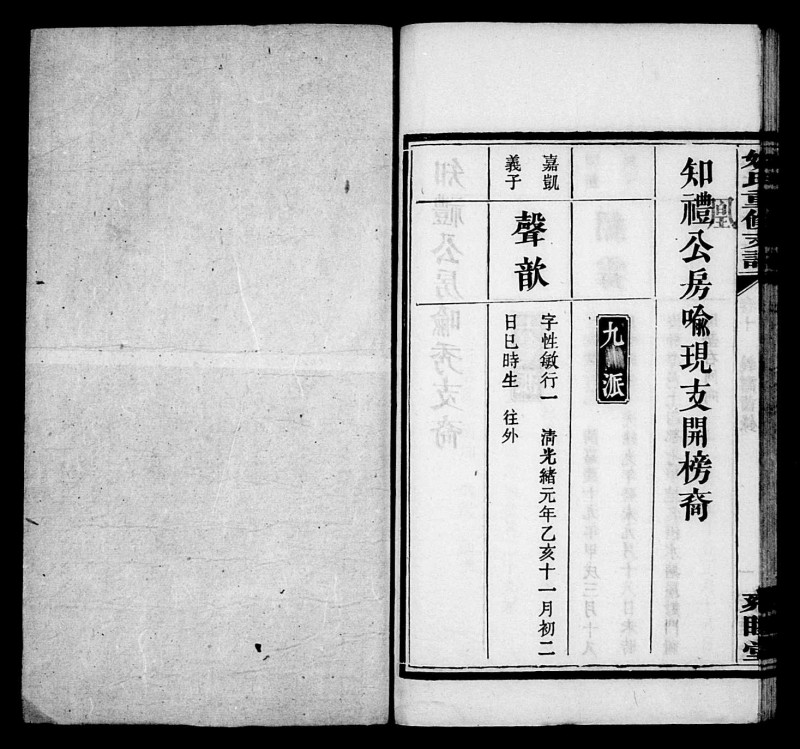 知禮公房喩現支開榜裔
鳳
九 派
嘉凱
義子
聲歆
字性敏行一 清光緒元年乙亥十一月初二
日巳時生 往外